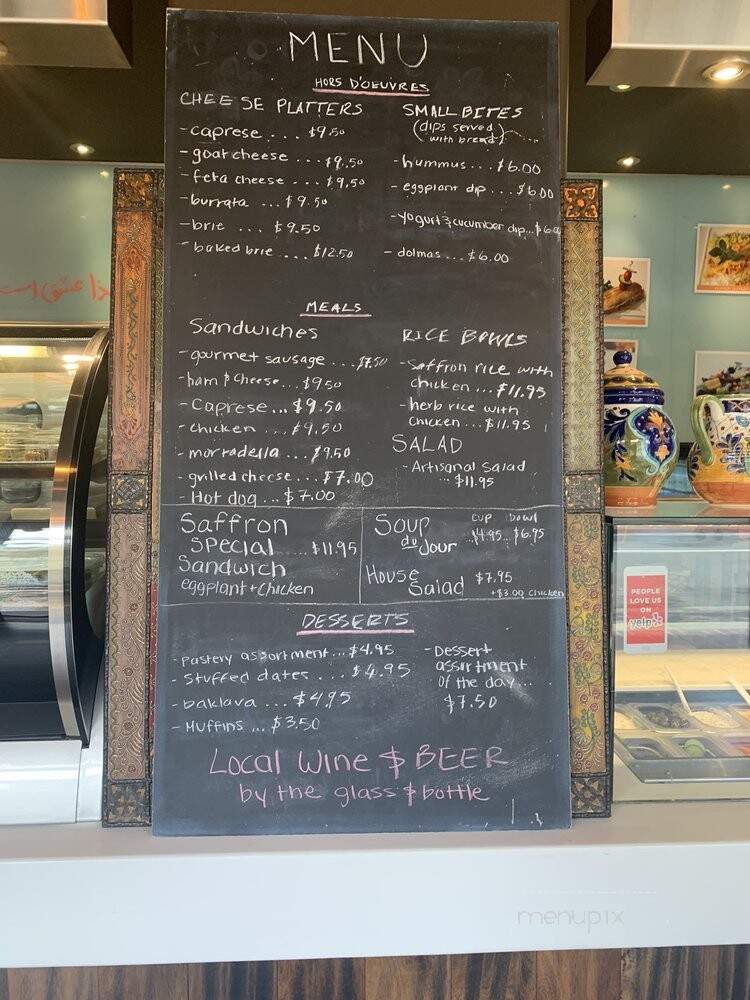 MENU
HORS D'OEUVRES
CHEESE PLATTERS
- caprese ... $9.50
- goat cheese ... $9.50
- feta cheese ... $9.50
- burrata ... $9.50
- brie ... $9.50
- baked brie ... $12.50
SMALL BITES
(dips served
with bread)
- hummus ... $6.00
- eggplant dip ... $6.00
- yogurt & cucumber dip ... $6.0
- dolmas ... $6.00
MEALS
Sandwiches
- gourmet sausage ... $7.50
- ham & cheese ... $9.50
- Caprese ... $9.50
- chicken ... $9.50
- mortadella ... $9.50
- grilled cheese ... $7.00
- Hot dog ... $7.00
RICE BOWLS
- Saffron rice with
chicken ... $11.95
- herb rice with
chicken ... $11.95
SALAD
- Artisanal Salad
... $11.95
Saffron
Special ..... $11.95
Sandwich
eggplant + chicken
Soup
du Jour
cup bowl
$4.95 .. $6.95
House
Salad $7.95
+$3.00 chicken
DESSERTS
- Pastery assortment ... $4.95
- Stuffed dates ... $4.95
- baklava ... $4.95
- Muffins ... $3.50
- Dessert
assortment
of the day ...
$7.50
Local Wine & BEER
by the glass & bottle
PEOPLE
LOVE US
ON
yelp
menupix